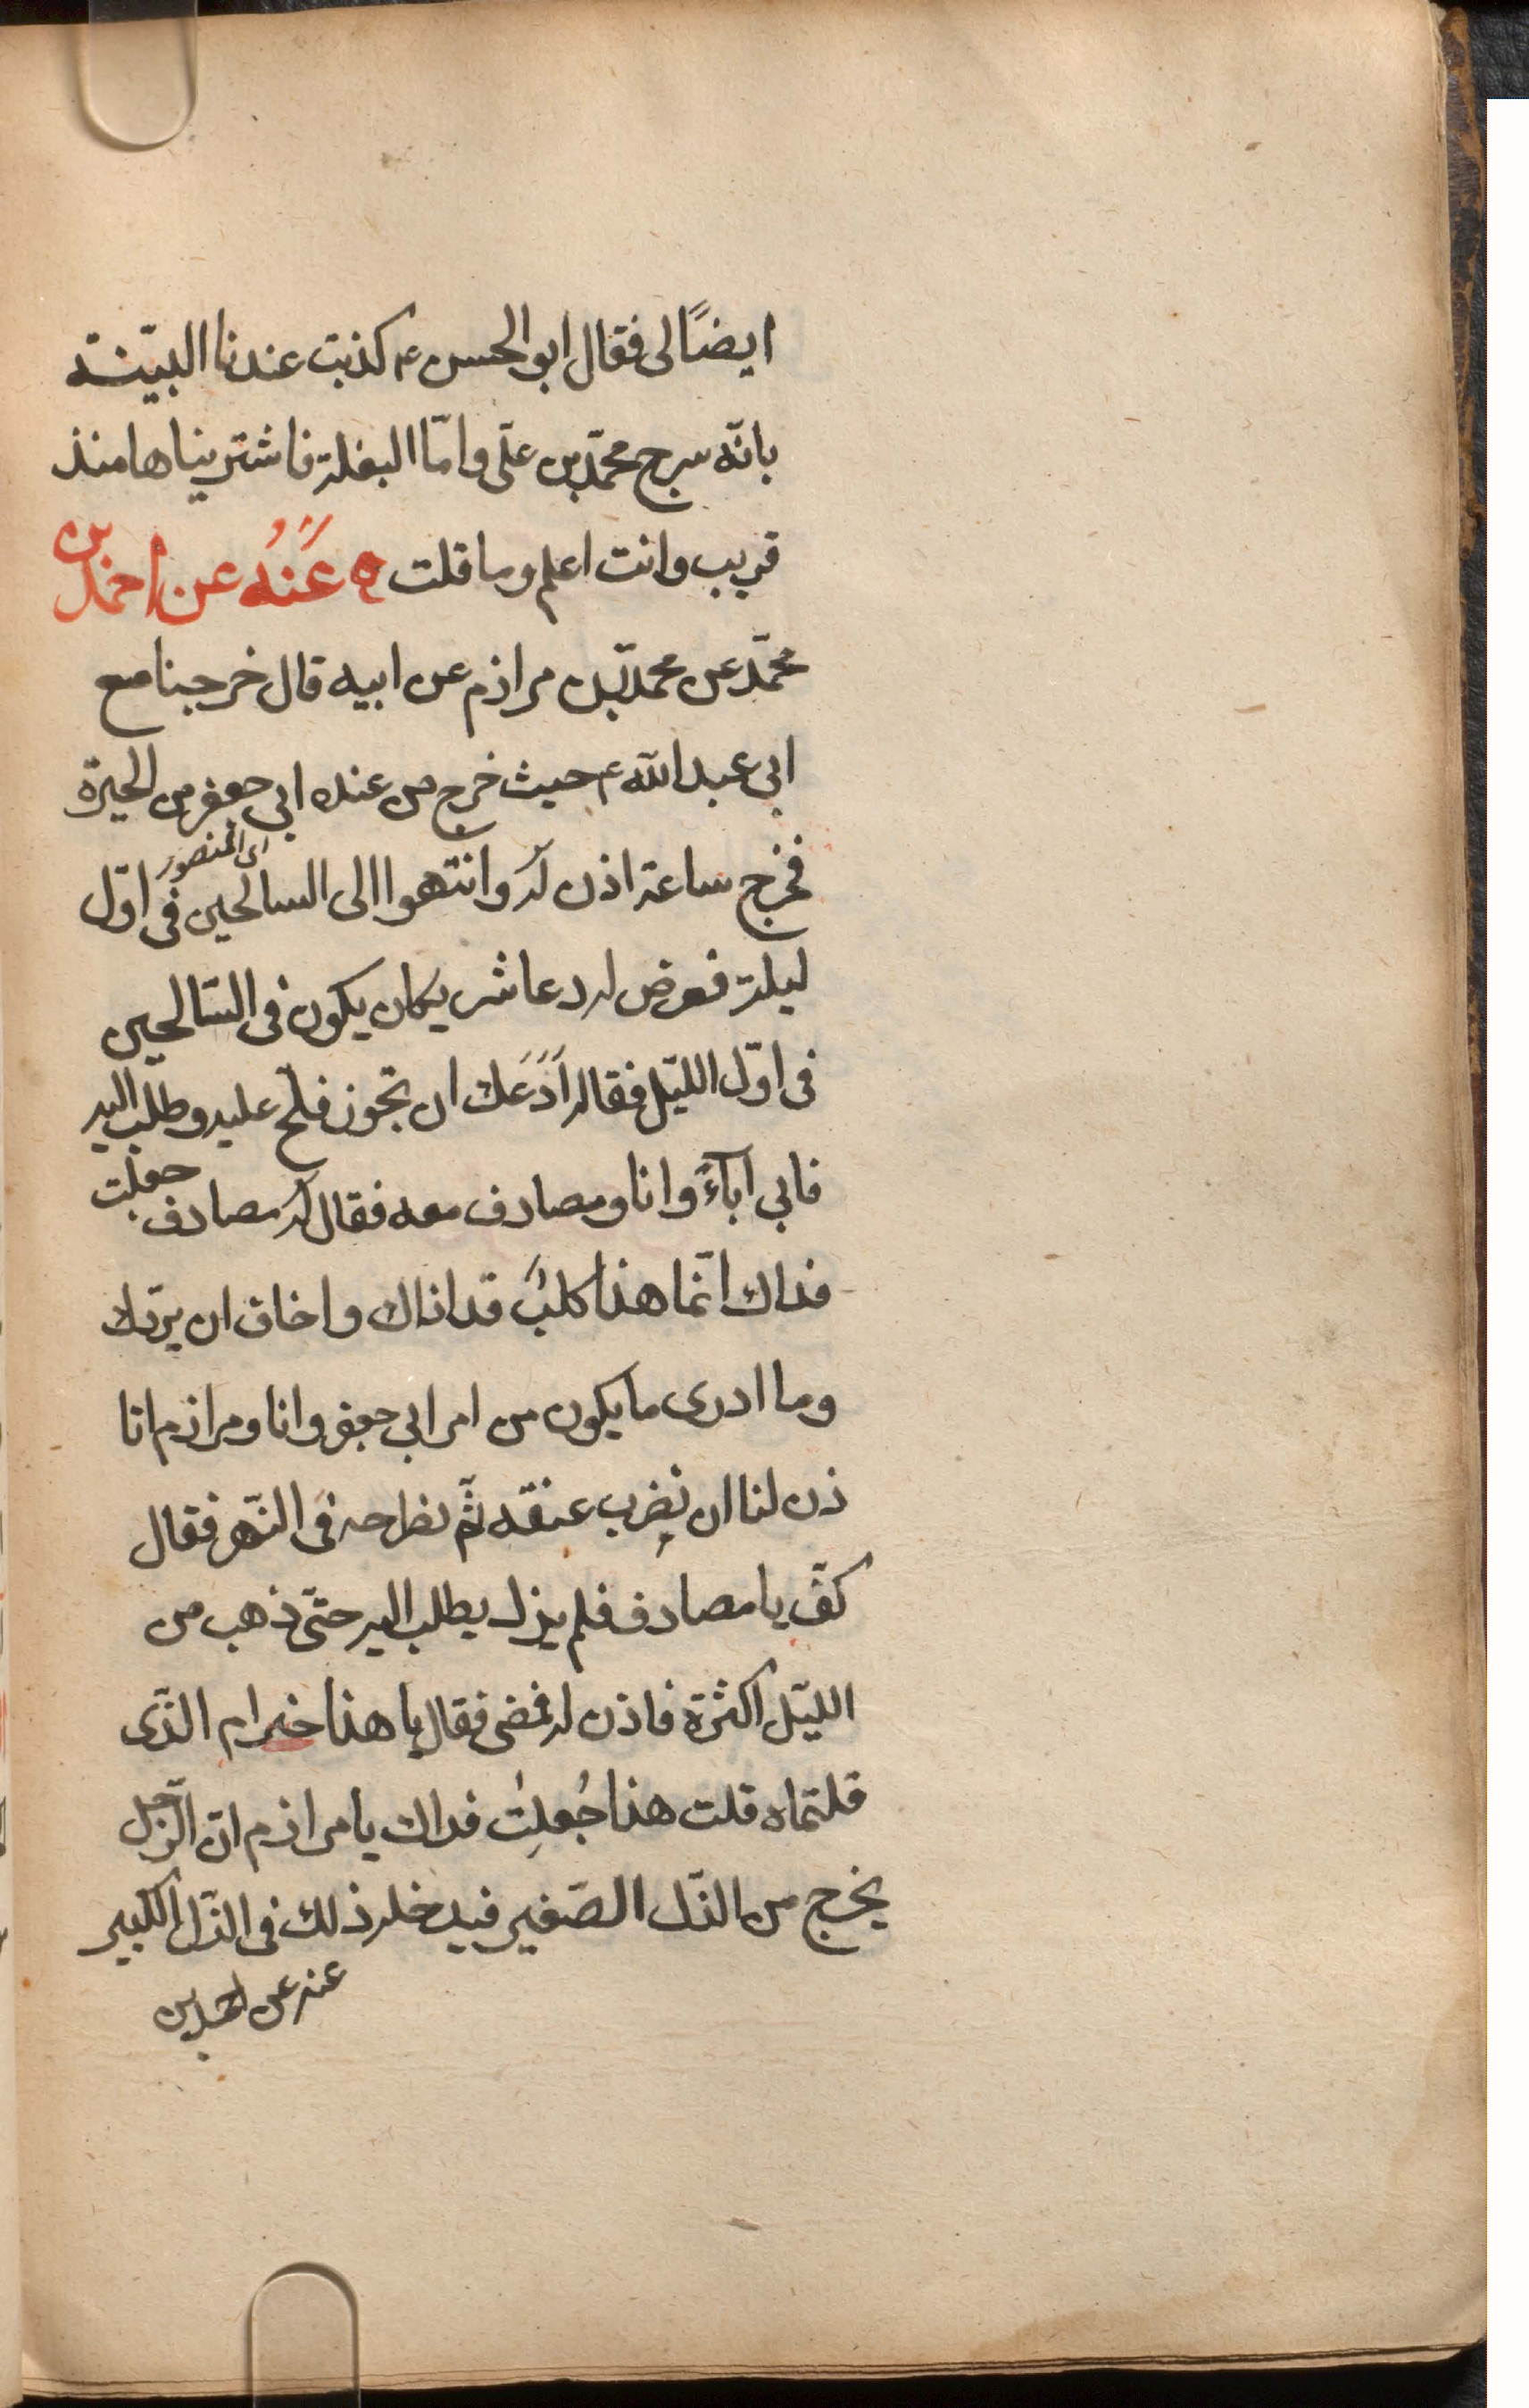 ايضًا لى فقال ابو الحسن ع كذبت عندنا البيّنة
بانّه سرج محمّد بن علّى وامّا البغلة فاشتريناها منذ
قريب وانت اعلم وما قلت ه عَنْهُ عن احمد بن
محمّد عن محمد بّن مرازم عن ابيه قال خرجنا مع
ابى عبد الله ع حيث خرج من عند ابى جعفر من الحيرة
اى المنصور
فخرج ساعة اذن له وانتهوا الى السالحين فى اوّل
ليلة فعرض له عاشر يكان يكون فى السّالحين
فى اوّل الليّل فقال له اَدَعَك ان تجوز فلح عليه وطلب اليه
فابى آباءً وانا ومصادف معه فقال له مصادف جعلت
فداك انّما هذا كلبٌ قد اذاك واخاف ان يردّك
وما ادرى ما يكون من امر ابى جعفر وانا ومرازم اتا
ذن لنا ان نضرب عنقه ثمّ نطرحه فى النّهر فقال
كفّ يا مصادف فلم يزل يطلب اليه حتّى ذهب من
الليّل اكثرة فاذن له فمضى فقال يا هذا خير ام الذّى
قلتماه قلت هذا جُعلِتُ فداك يا مرازم انّ الرّجل
يخرج من الذّل الصّغير فيدخله ذلك فى الذّل الكبير
عنه عن احمد بن